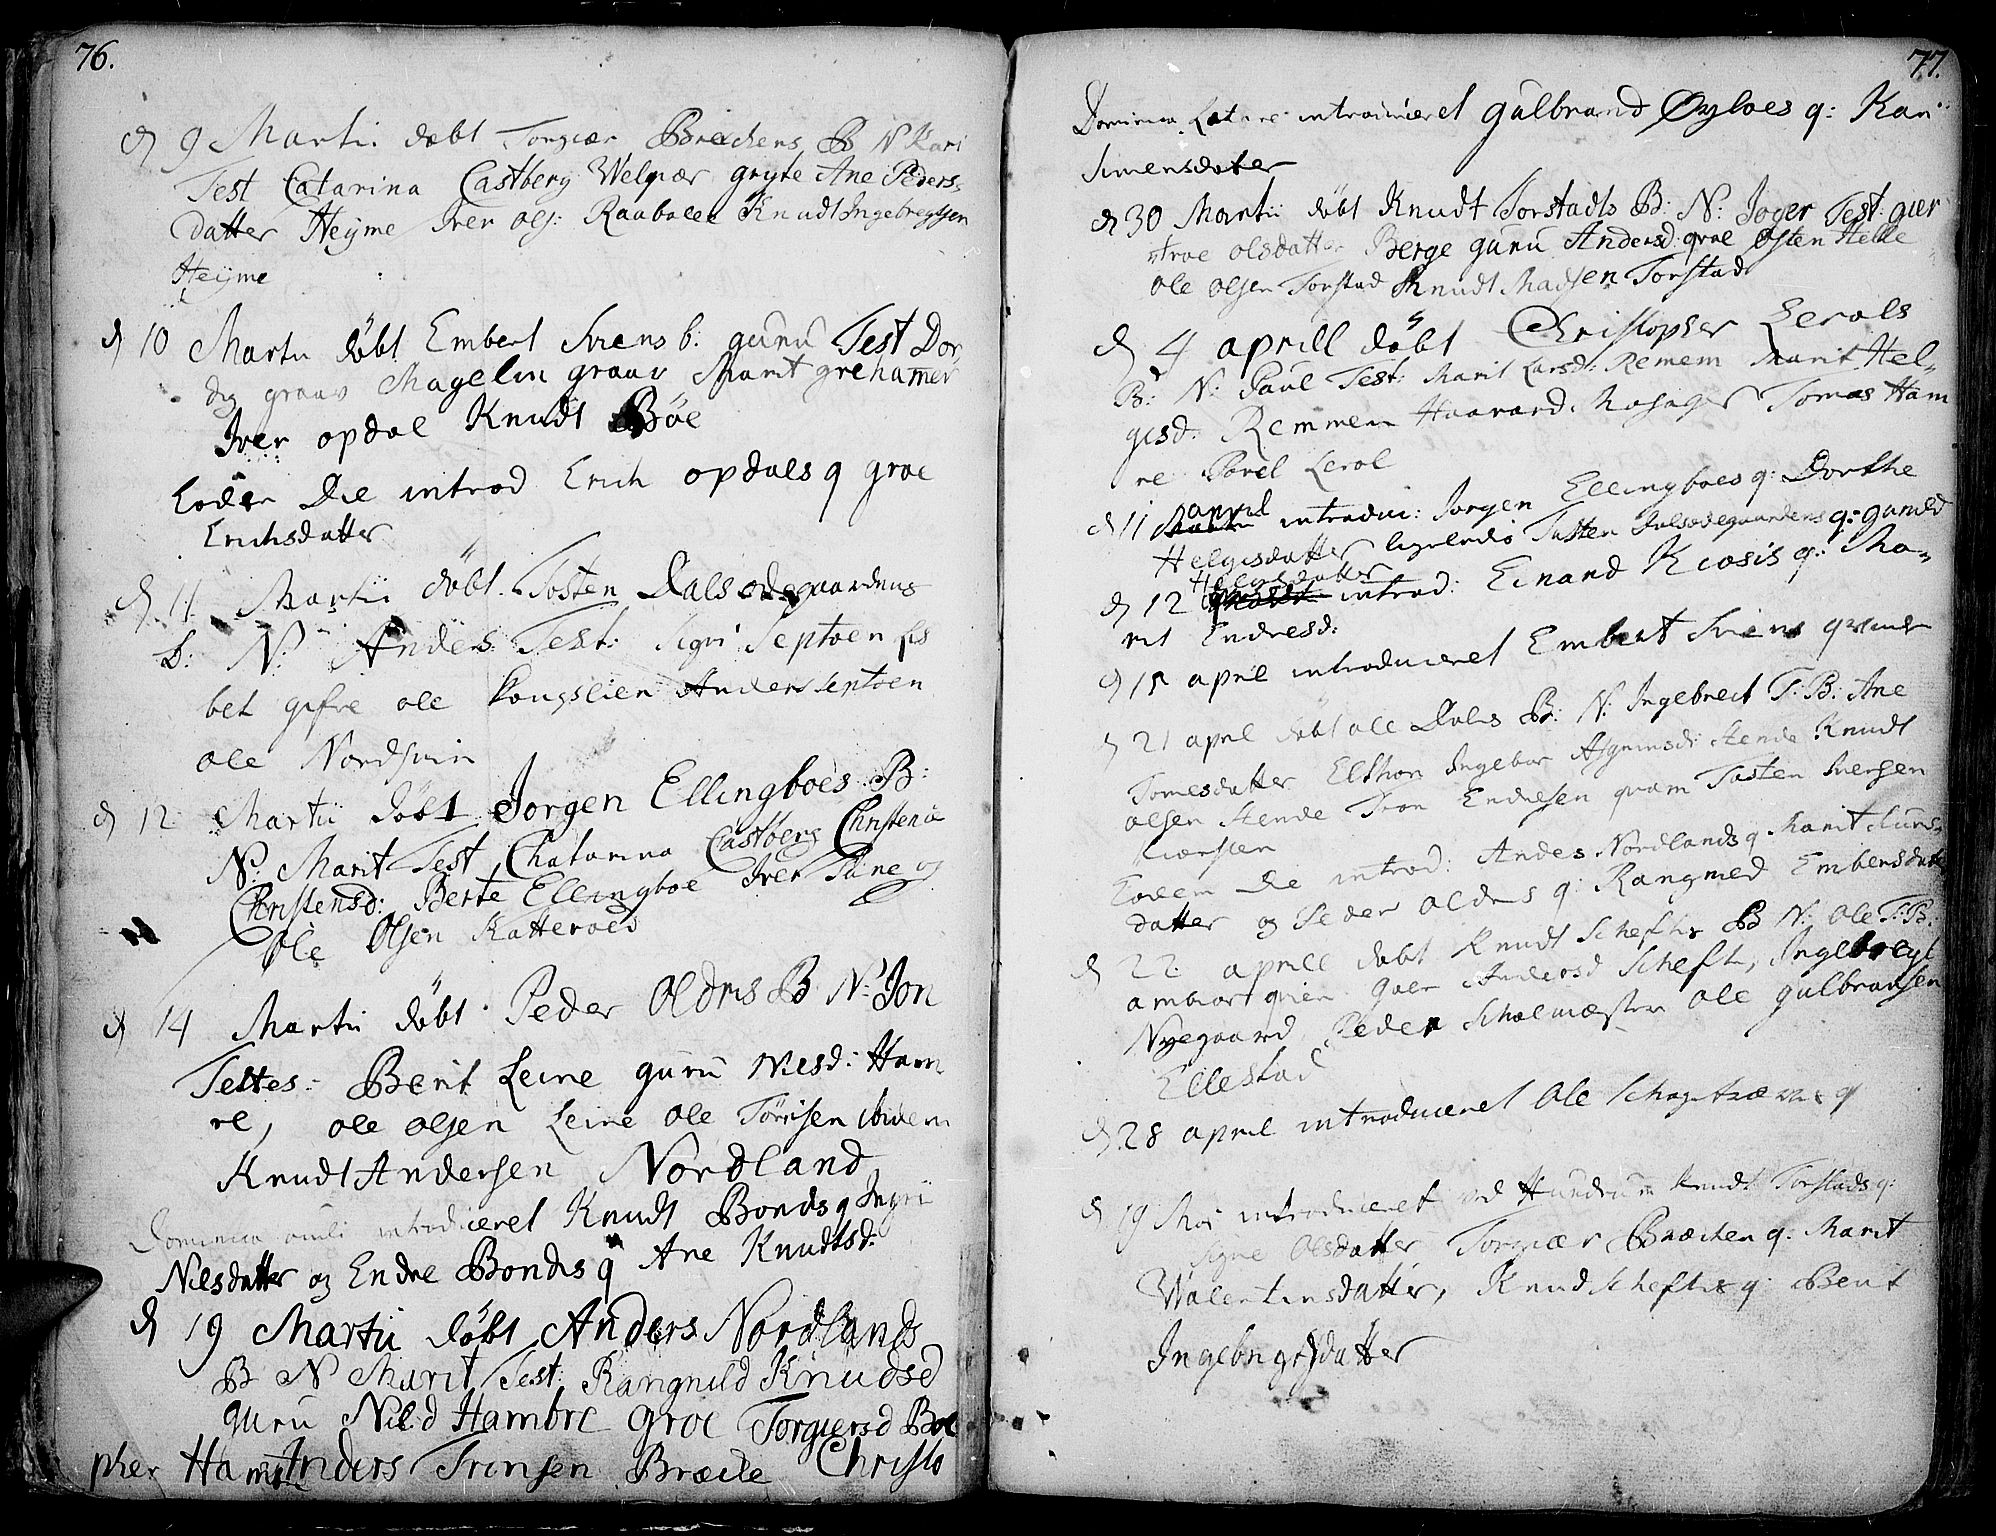 76.
d 9 Martii døbt Torgier Brechens B N Kari
Test Catarina Castberg Welgier gryte Ane Peders-
datter Heyme Iver Ols: Raabolen Knudt Ingebregtsen
Heyme
d 10 Martii døbt Embert Sviens b: guru Test Dor
dy graav Magelin graav Marit grehamer
Iver opdal Knudt Bøe
Eodem Die introd Erich opdals q groe
Erichsdatter
d 11 Martii døbt Tosten Dalsødegaardens
b: N: Anders Test: Sigri Septoen Lis
bet gifre ole Kongslien Anders Septoen
ole Nordsvin
d 12 Martii døbt Jorgen Ellingboes B:
N: Marit Test Chatarina Castberg Christence
Christensd: Berte Ellingboe Iver Pune og
Ole Olsen Katteroed
d 14 Martii døbt Peder Oldris B N: Jon
Testes: Berit Leine guru Nielsd: Ham
re, ole olsen Leine ole Tørrisen ibidem
Knudt Andersen Nordland
Dominica introduceret Knudt Bonds q Ingri
Nilsdatter og Endre Bonds q Ane Knudtsd:
d 19 Martii døbt Anders Nordlands
B N Marit Test: Rangnild Knudsd
guru Nilsd Hambre groe Torgiersd Boe
pher Hamre Anders Trensen Bræcke Christo
77.
Dominica Lætare introduceret gulbrand Øyloes q: Kari
Simensdatter
d 30 Martii døbt Knudt Torstads B: N: Joger Test: gier
troe olsdatter Berge guru Andersd: groe Østen Helle
ole olsen Torstad Knudt Madsen Torstad
d 4 aprill døbt Christopher Lerols
B: N: Paul Test: Marit Larsd: Remem Marit Hel-
gesd: Remmen Haavard Tomas Ham
re Povel Lerol
d 11 april introdu: Jorgen Ellingboes q: Dorthe
Helgesdatter ligeledis Tosten Dalsødegaardens q: gunild
Helgesdatter
d 12 introd: Einand Kiosis q: Ma-
rit Endresd:
d 15 april introduceret Embert Sviens qvinde
d 21 april døbt ole Dales B: N: Ingebrect T: B: Ane
Tomesdatter Elthon Ingebor Asgrimsd: Stende Knudt
olsen Stende Tron Endresen quam Tosten Iversen
Eodem Die introd: Andes Nordlands q: Marit
datter og Peder Oldris q: Rangnild Embersdatter
d 22 aprill døbt Knudt Schefte B N: Ole T: B:
ambior qvien goer Andersd Schefte, Ingebregt
Nyegaard Peder Scholmæster Ole gulbransen
Ellestad
d 28 april introduceret Ole q
d 19 Maj introduceret ved Hundrum Knudt Torstads q:
Signe Olsdatter Torgiær Bræcken q: Marit
Walentinsdatter, Knud Scheftis q: Berit
Ingebrigtsdatter